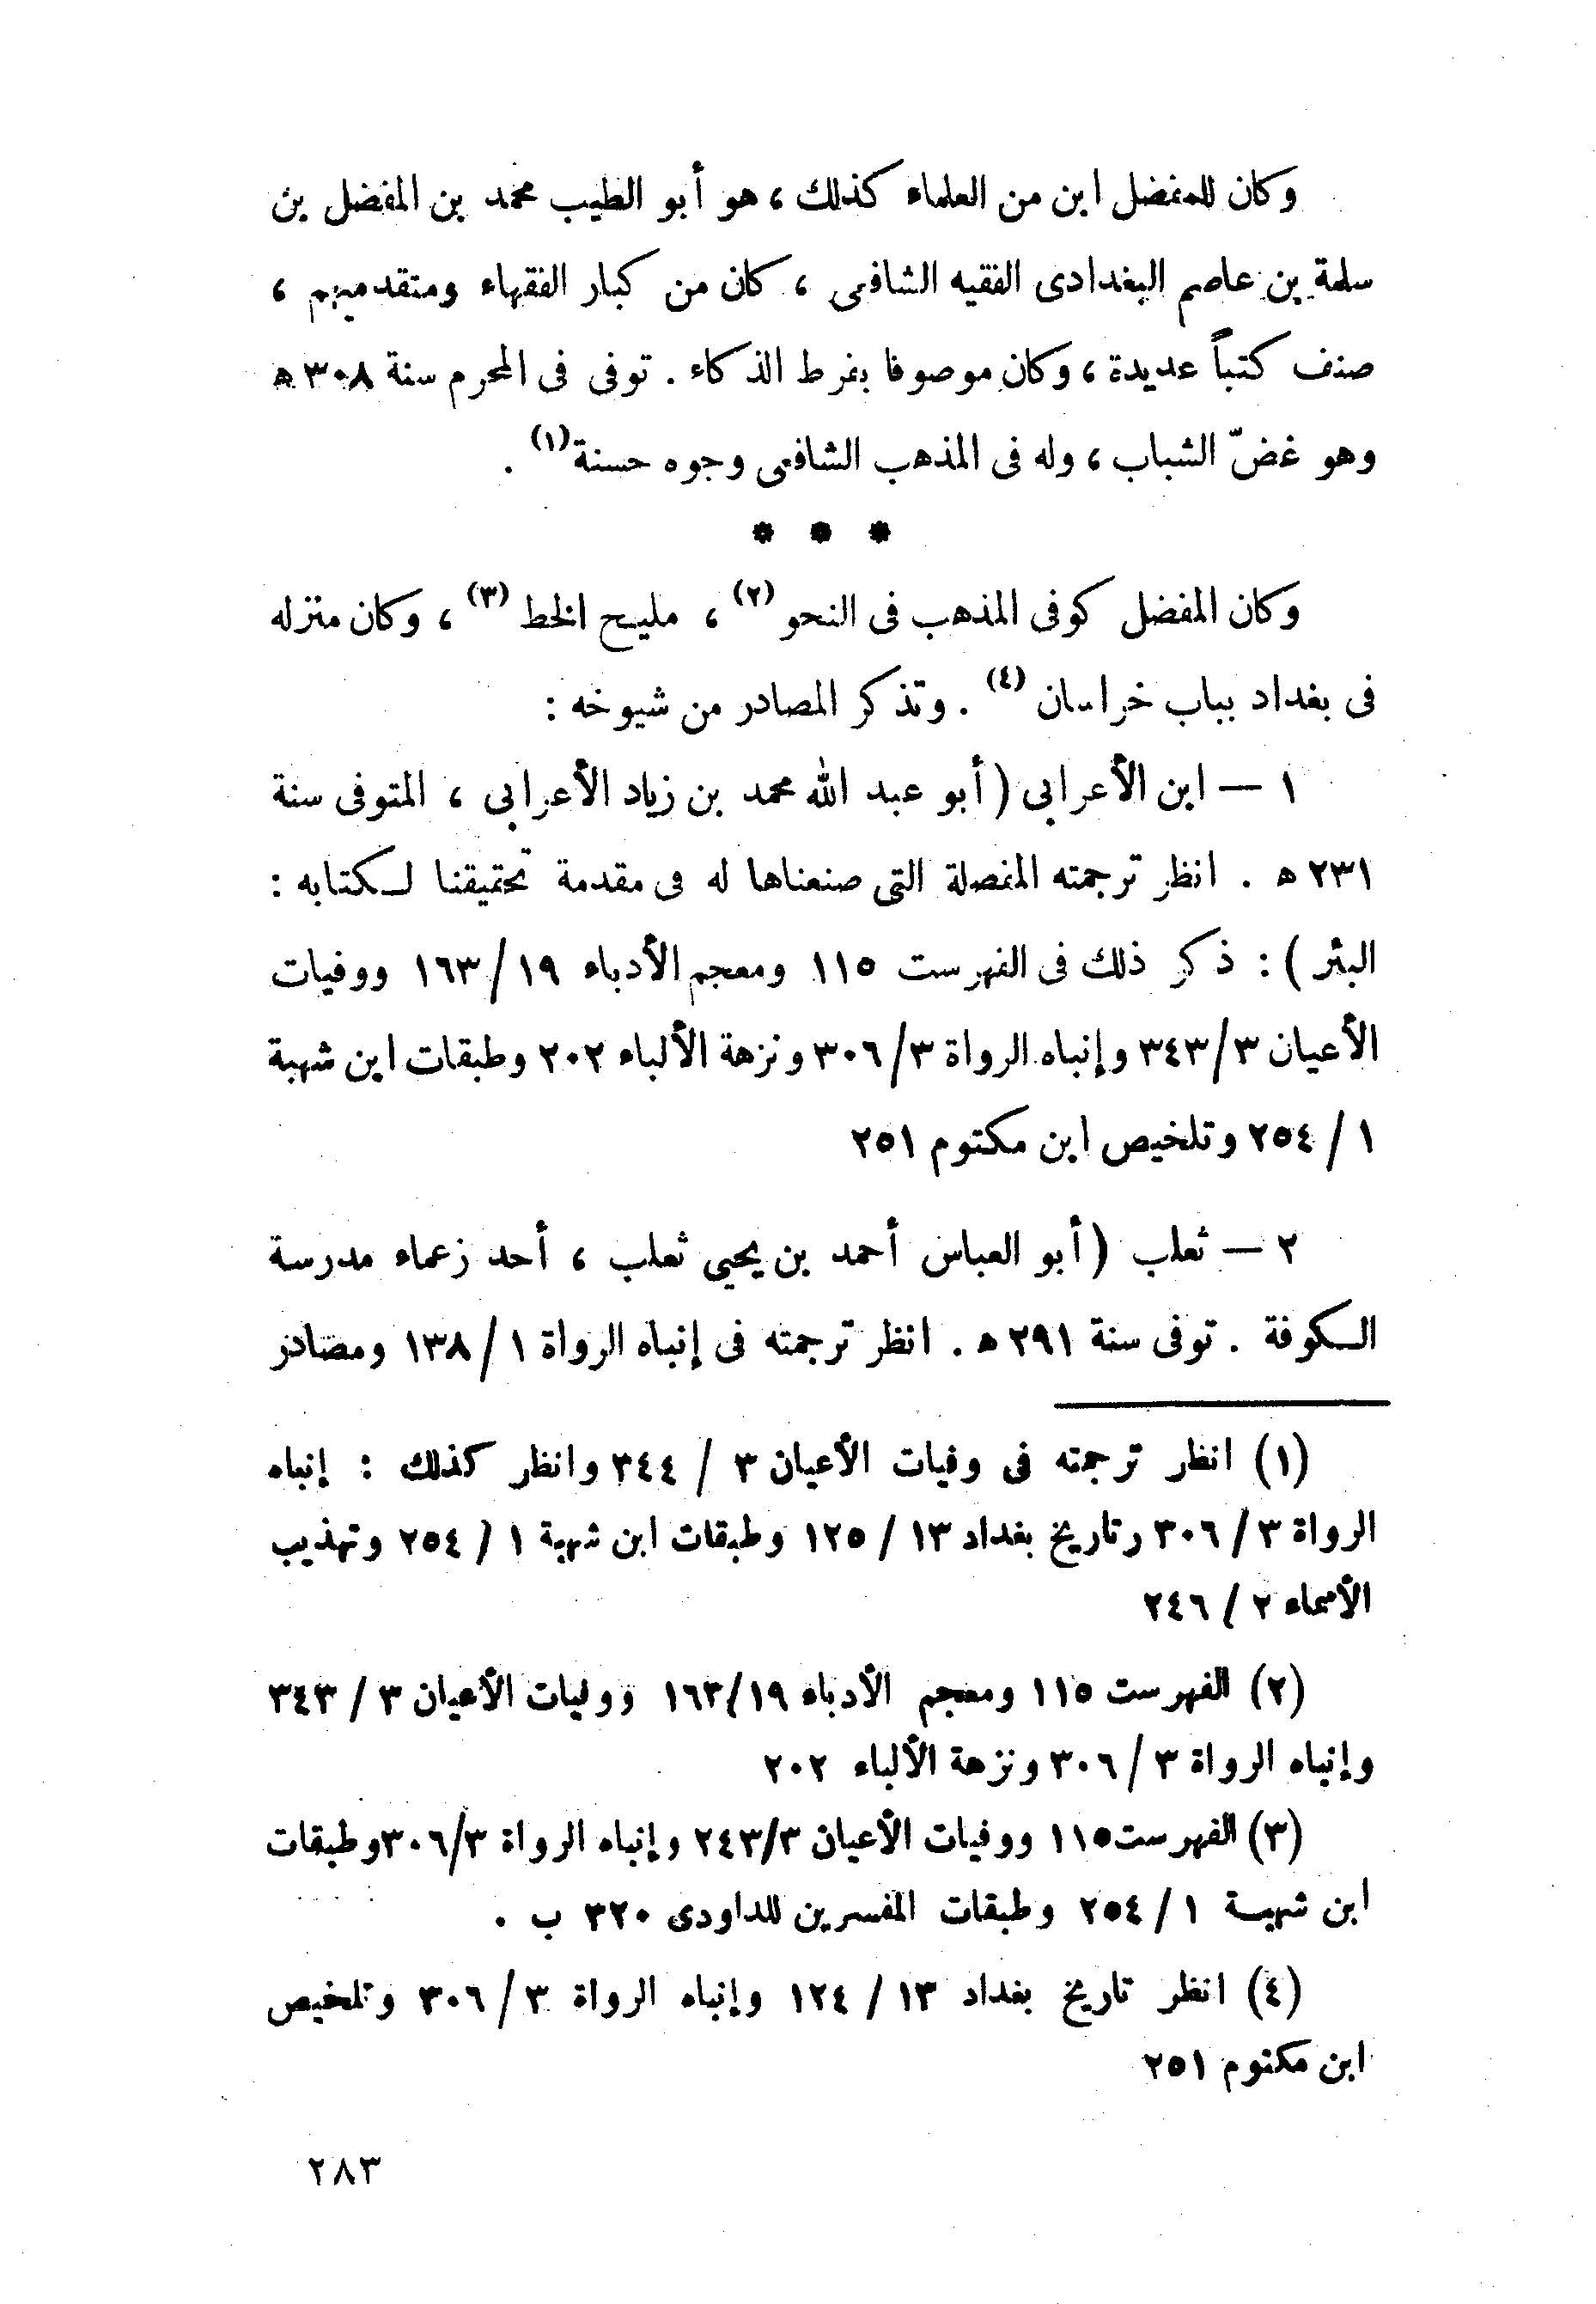 وكان للمفضل ابن من العلماء كذلك ، هو أبو الطيب محمد بن المفضل بن
سلمة بن عاصم البغدادى الفقيه الشافعى ، كان من كبار الفقهاء ومتقدميهم ،
صنف كتباً عديدة ، وكان موصوفا بفرط الذكاء . توفى فى المحرم سنة ٣٠٨ ه
وهو غضّ الشباب ، وله فى المذهب الشافعى وجوه حسنة (١) .
* * *
وكان المفضل كوفى المذهب فى النحو (٢) ، مليح الخط (٣) ، وكان منزله
فى بغداد بباب خراسان (٤) . وتذكر المصادر من شيوخه :
١ — ابن الأعرابي ( أبو عبد الله محمد بن زياد الأعرابي ، المتوفى سنة
٢٣١ ه . انظر ترجمته المفصلة التى صنعناها له فى مقدمة تحقيقنا لكتابه :
البئر ) : ذكر ذلك فى الفهرست ١١٥ ومعجم الأدباء ١٩/ ١٦٣ ووفيات
الأعيان ٣/ ٣٤٣ وإنباه الرواة ٣/ ٣٠٦ ونزهة الألباء ٢٠٢ وطبقات ابن شهبة
١ / ٢٥٤ وتلخيص ابن مكتوم ٢٥١
٢ — ثعلب ( أبو العباس أحمد بن يحيى ثعلب ، أحد زعماء مدرسة
الكوفة . توفى سنة ٢٩١ ه . انظر ترجمته فى إنباه الرواة ١ / ١٣٨ ومصادر
(١) انظر ترجمته فى وفيات الأعيان ٣ / ٣٤٤ وانظر كذلك : إنباه
الرواة ٣ / ٣٠٦ وتاريخ بغداد ١٣ / ١٢٥ وطبقات ابن شهبة ١ / ٢٥٤ وتهذيب
الأسماء ٢ / ٢٤٦
(٢) الفهرست ١١٥ ومعجم الأدباء ١٩/ ١٦٣ ووفيات الأعيان ٣ / ٣٤٣
وإنباه الرواة ٣ / ٣٠٦ ونزهة الألباء ٢٠٢
(٣) الفهرست ١١٥ ووفيات الأعيان ٣/ ٢٤٣ وإنباه الرواة ٣/ ٣٠٦ وطبقات
ابن شهبة ١ / ٢٥٤ وطبقات المفسرين للداودى ٣٢٠ ب .
(٤) انظر تاريخ بغداد ١٣ / ١٢٤ وإنباه الرواة ٣ / ٣٠٦ وتلخيص
ابن مكتوم ٢٥١
٢٨٣